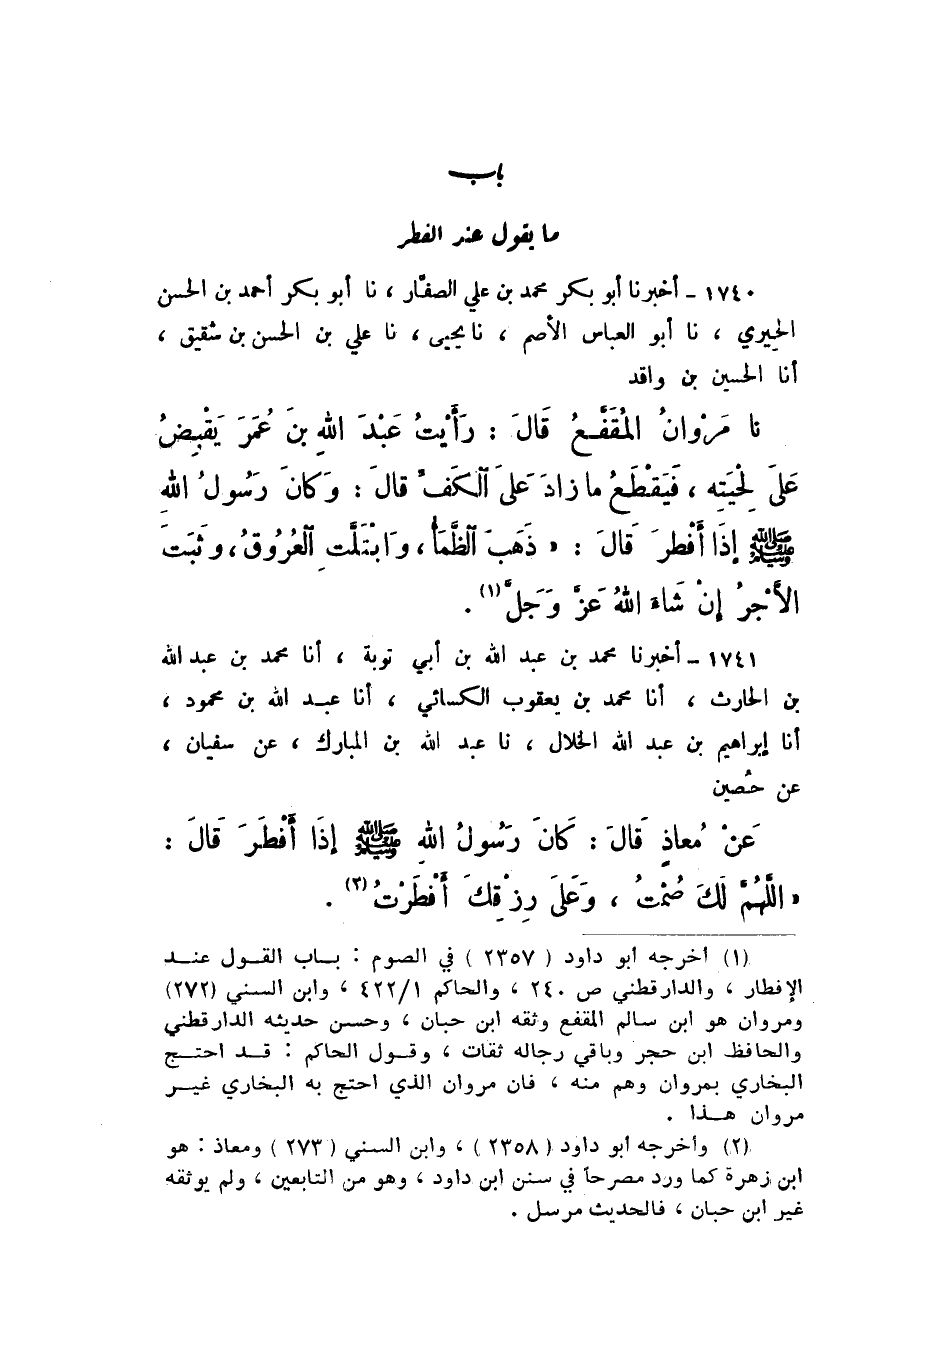 باب
ما يقول عند الفطر
١٧٤٠ - أخبرنا أبو بكر محمد بن علي الصفَّار ، نا أبو بكر أحمد بن الحسن
الحِيري ، نا أبو العباس الأصم ، نا يحيى ، نا علي بن الحسن بن شقيق ،
أنا الحسين بن واقد
نا مَرْوانُ المُقَفَّعُ قَالَ : رَأَيْتُ عَبْدَ اللهِ بنَ عُمَرَ يَقْبِضُ
عَلَى لِحْيَتِه ، فَيَقْطَعُ ما زادَ عَلَى الكَفِّ قالَ : وَكانَ رَسُولُ اللهِ
ﷺ إذَا أَفْطرَ قالَ : « ذَهَبَ الظَّمَأُ ، وَابْتَلَّتِ العُرُوقُ ، وَثَبَتَ
الأَجْرُ إنْ شَاءَ اللهُ عَزَّ وَجَلَّ (١) .
١٧٤١ - أخبرنا محمد بن عبد الله بن أبي توبة ، أنا محمد بن عبد الله
بن الحارث ، أنا محمد بن يعقوب الكسائي ، أنا عبد الله بن محمود ،
أنا إبراهيم بن عبد الله الخلال ، نا عبد الله بن المبارك ، عن سفيان ،
عن حُصين
عَنْ مُعاذٍ قَالَ : كَانَ رَسُولُ اللهِ ﷺ إذَا أَفْطَرَ قَالَ :
« اللَّهُمَّ لَكَ صُمْتُ ، وَعَلَى رِزْقِكَ أَفْطَرْتُ (٢) .
(١) أخرجه أبو داود ( ٢٣٥٧ ) في الصوم : باب القول عند
الإفطار ، والدارقطني ص ٢٤٠ ، والحاكم ٤٢٢/١ ، وابن السني (٢٧٢)
ومروان هو ابن سالم المقفع وثقه ابن حبان ، وحسن حديثه الدارقطني
والحافظ ابن حجر وباقي رجاله ثقات ، وقول الحاكم : قد احتج
البخاري بمروان وهم منه ، فان مروان الذي احتج به البخاري غير
مروان هذا .
(٢) وأخرجه أبو داود ( ٢٣٥٨ ) ، وابن السني ( ٢٧٣ ) ومعاذ : هو
ابن زهرة كما ورد مصرحاً في سنن ابن داود ، وهو من التابعين ، ولم يوثقه
غير ابن حبان ، فالحديث مرسل .